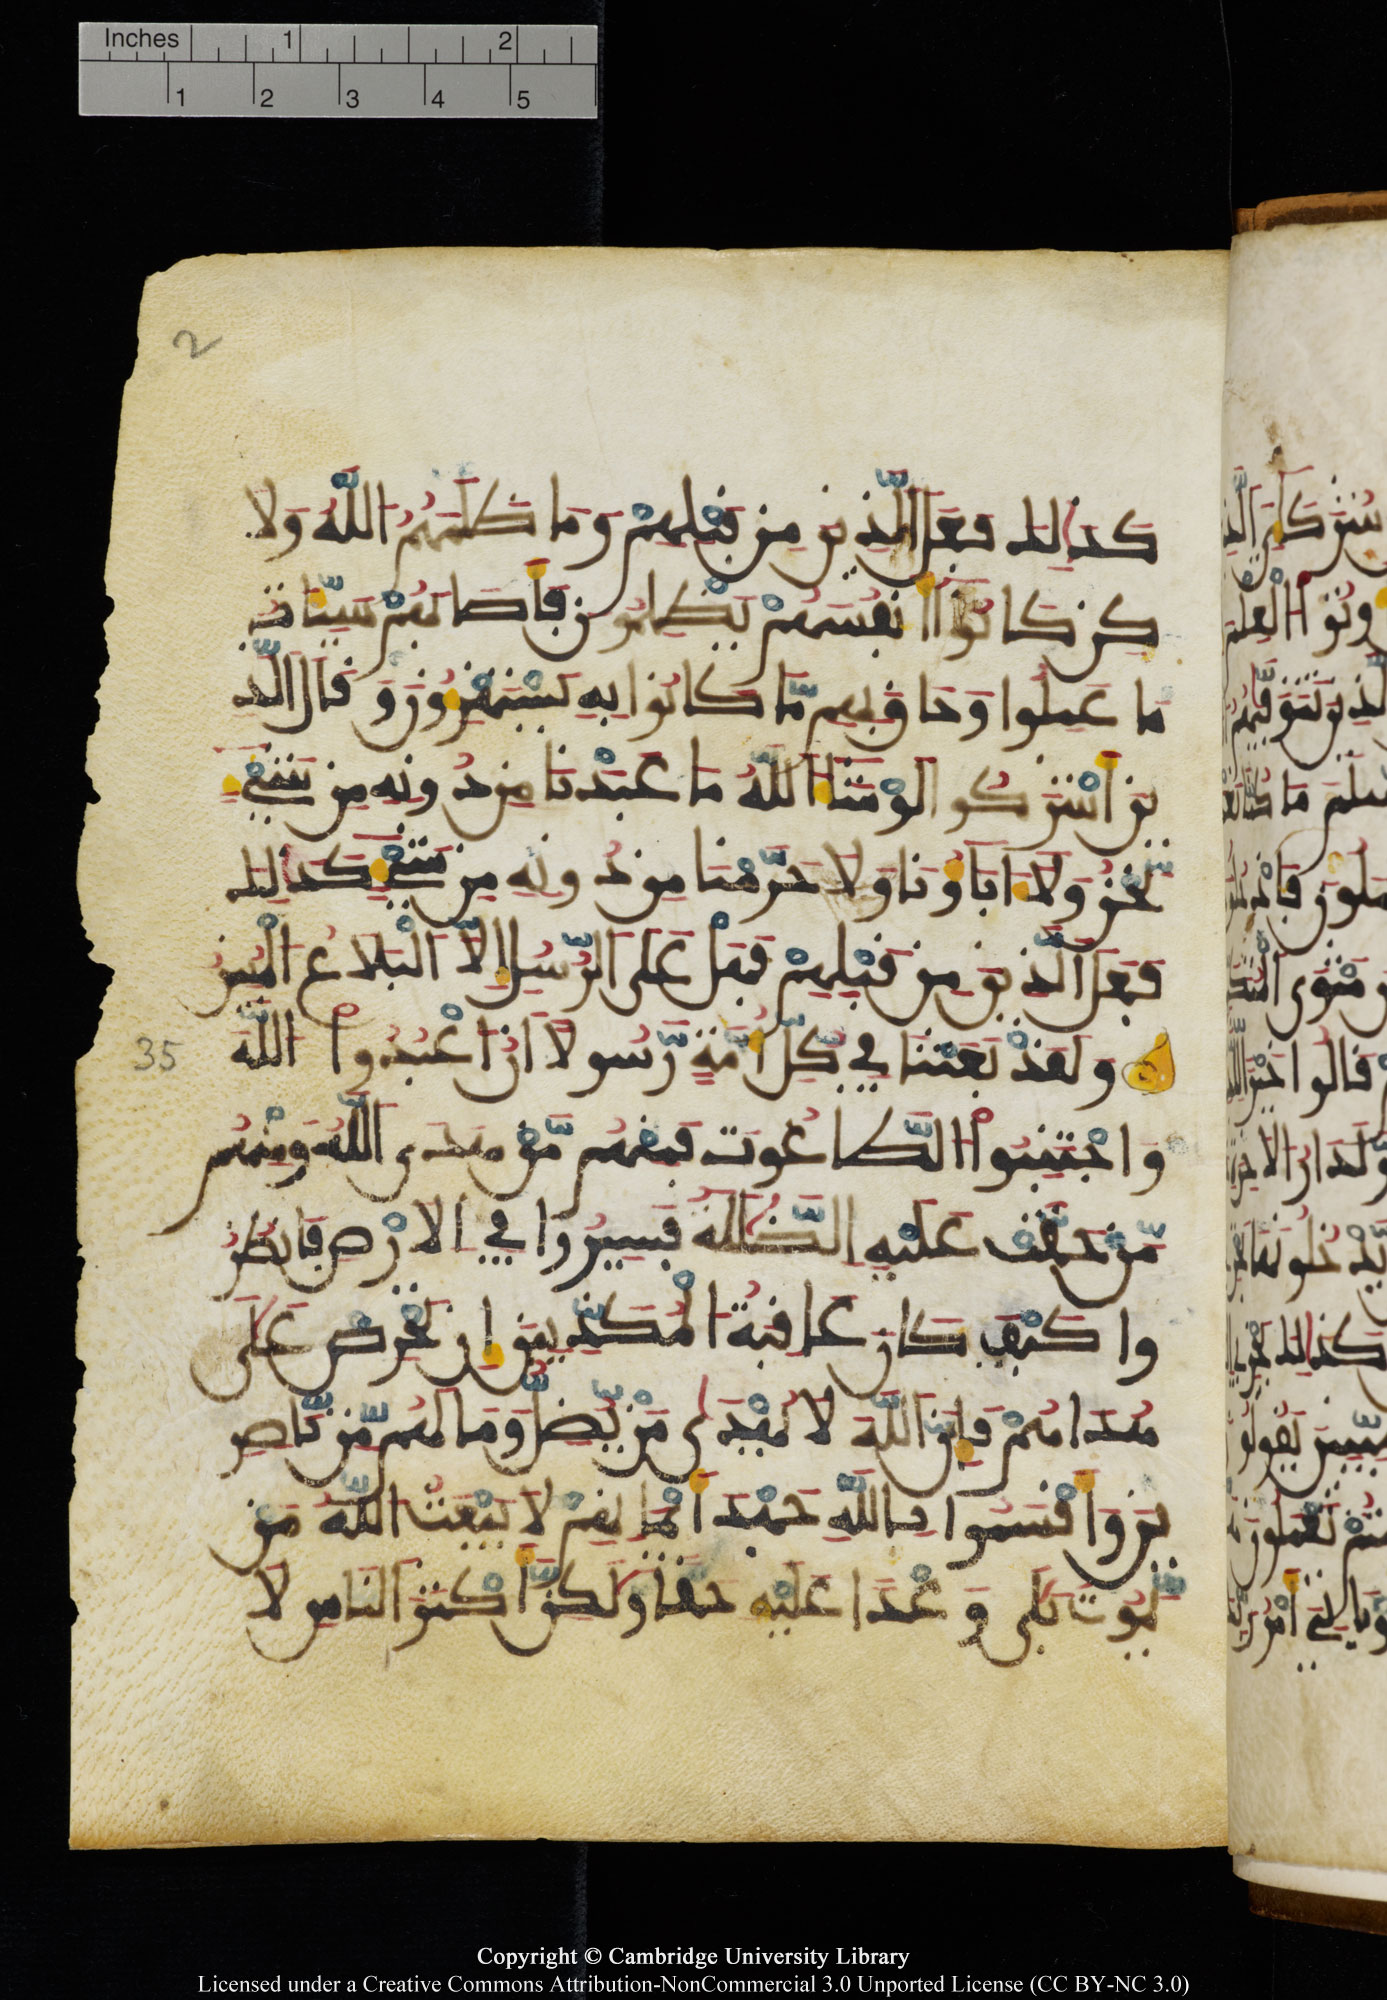 Inches 1 2
1 2 3 4 5
2
كذلك فعل الذين من قبلهم وما ظلمهم الله ولا
كن كانوا انفسهم يظلمون فأصابهم سيئات
ما عملوا وحاق بهم ما كانوا به يستهزءون وقال الذ
ين أشركوا لو شاء الله ما عبدنا من دونه من شيء
نحن ولا ءاباؤنا ولا حرمنا من دونه من شيء كذلك
فعل الذين من قبلهم فهل على الرسل إلا البلاغ المبين
35
ولقد بعثنا في كل أمة رسولا أن اعبدوا الله
واجتنبوا الطاغوت فمنهم من هدى الله ومنهم
من حقت عليه الضللة فسيروا في الارض فانظر
وا كيف كان عاقبة المكذبين إن تحرص على
هداهم فإن الله لا يهدى من يضل وما لهم من ناصر
ين وأقسموا بالله جهد أيمانهم لا يبعث الله من
يموت بلى وعدا عليه حقا ولكن أكثر الناس لا
Copyright © Cambridge University Library
Licensed under a Creative Commons Attribution-NonCommercial 3.0 Unported License (CC BY-NC 3.0)